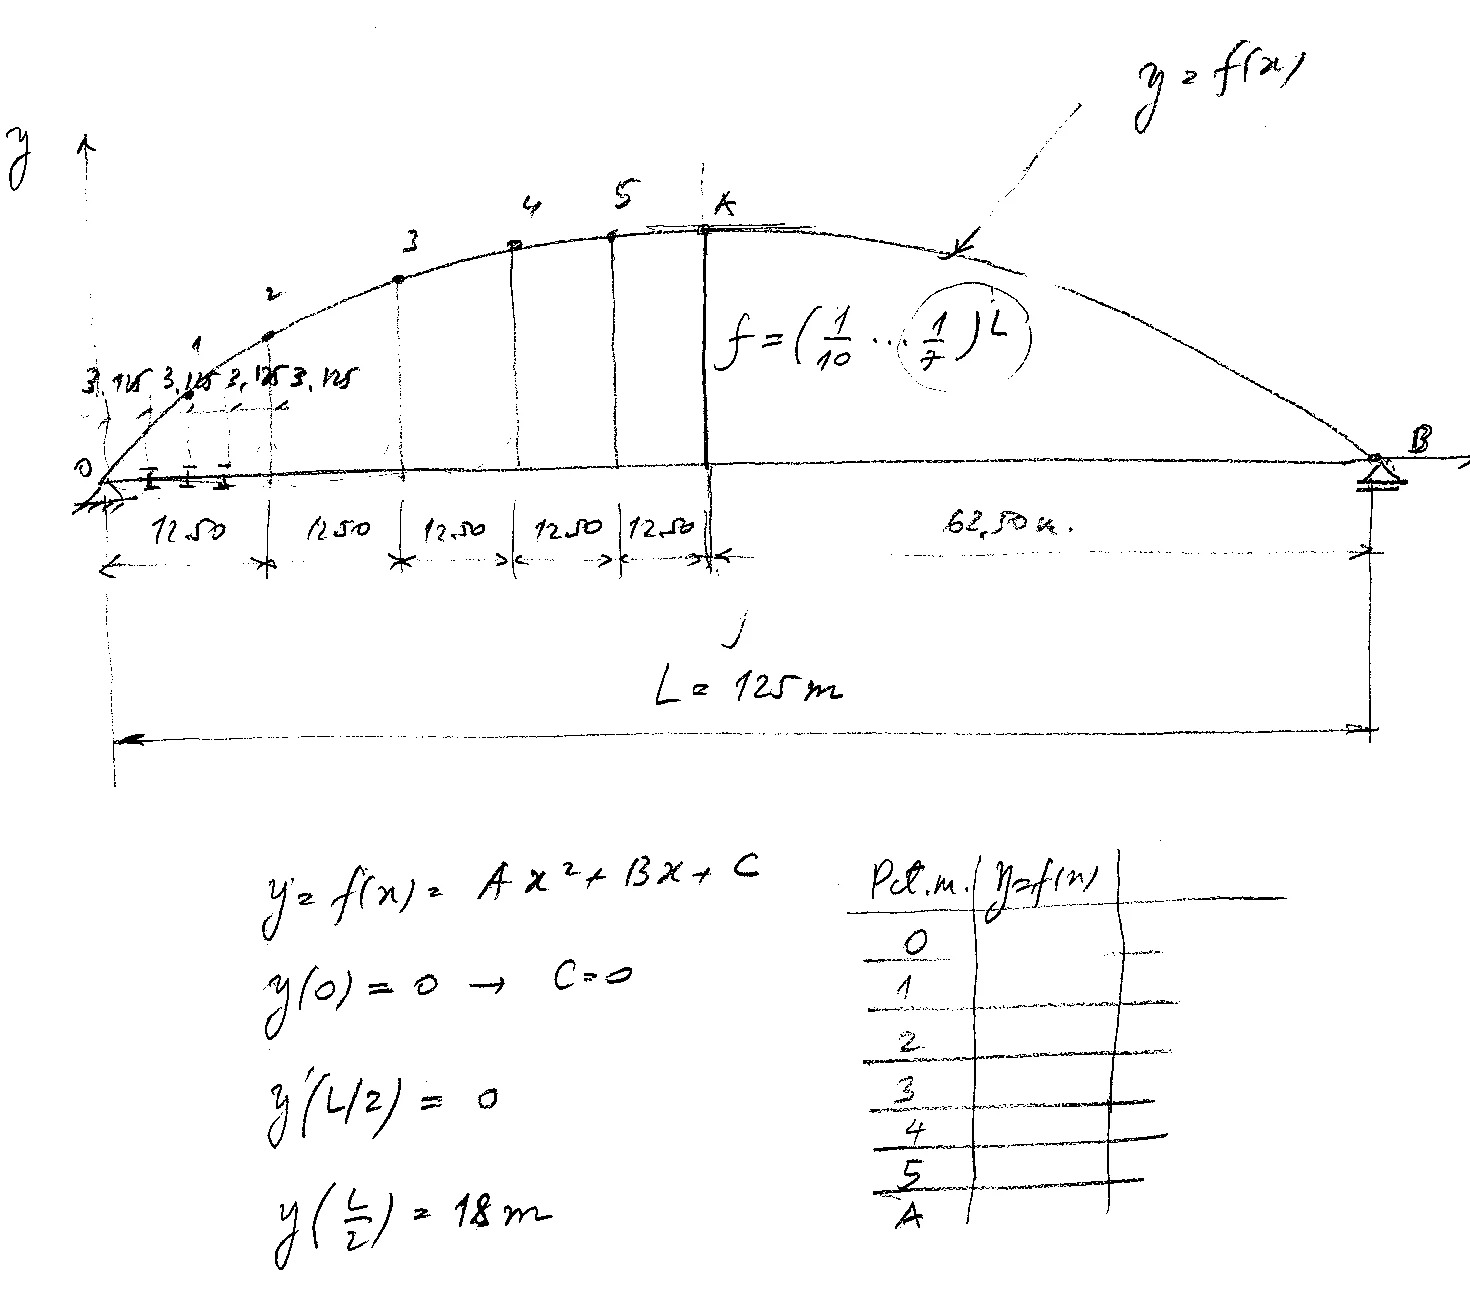 y = f(x)
y
0
1
2
3
4
5
A
f = (1/10 ... 1/7) L
3,125 3,125 3,125 3,125
B
12.50 12.50 12.50 12.50 12.50 62,50 m.
L = 125 m
y = f(x) = Ax² + Bx + C
y(0) = 0 → C = 0
y'(L/2) = 0
y(L/2) = 18 m
Pct.m. y=f(x)
0
1
2
3
4
5
A